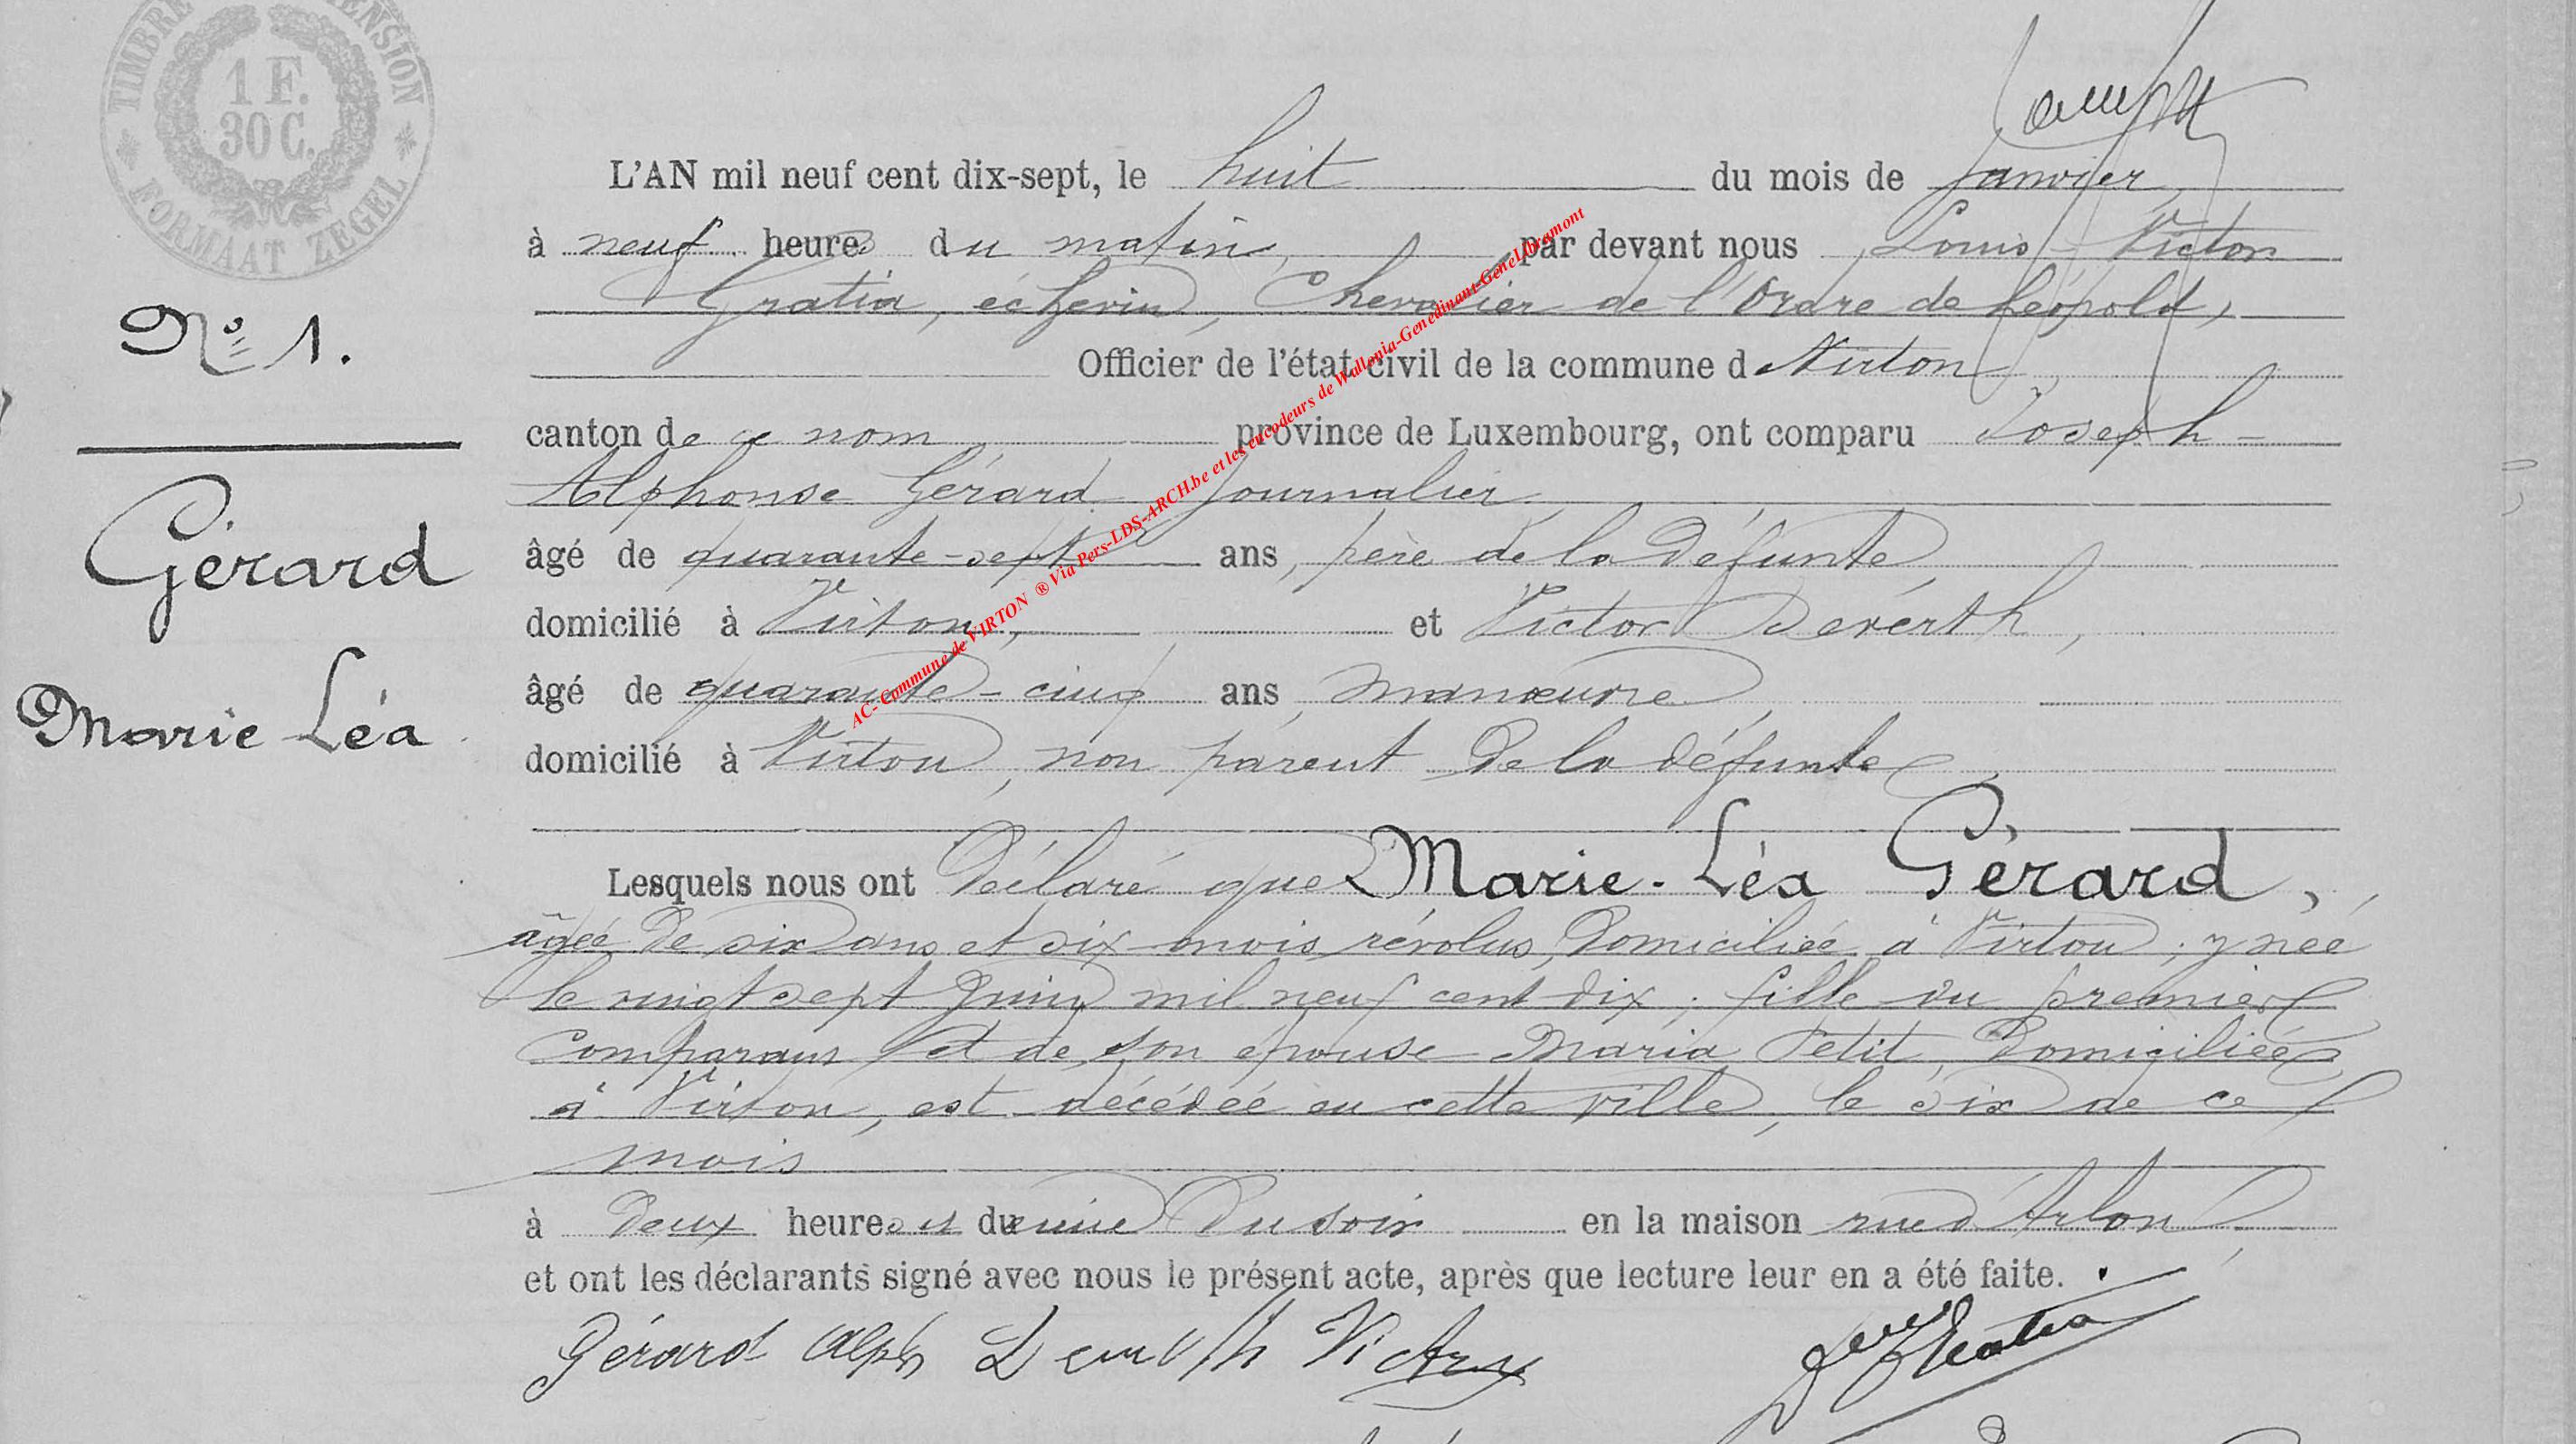 TIMBRE DIMENSION
1 F.
30 C.
FORMAAT ZEGEL
L'AN mil neuf cent dix-sept, le huit du mois de Janvier,
à neuf heures du matin, par devant nous Louis Victor
Gratia, échevin, Chevalier de l'Ordre de Léopold,
Nº 1.
Officier de l'état civil de la commune de Virton,
canton de ce nom, province de Luxembourg, ont comparu Joseph-
Alphonse Gérard, journalier
Gérard
âgé de quarante-sept ans, père de la défunte,
domicilié à Virton, et Victor
Marie Léa
âgé de quarante-cinq ans, manœuvre,
domicilié à Virton, non parent de la défunte,
Lesquels nous ont déclaré que Marie-Léa Gérard,
âgée de six ans et six mois révolus, domiciliée à Virton, y née
le vingt sept Juin mil neuf cent dix, fille du premier
comparant et de son épouse Maria Petit, domiciliée
à Virton, est décédée en cette ville, le six de ce
mois
à deux heures et demie du soir en la maison rue d'Arlon,
et ont les déclarants signé avec nous le présent acte, après que lecture leur en a été faite.
Gérard Alph Victor
Gratia
AC- Commune de VIRTON ® Via Pers-LDS-ARCH.be et les encodeurs de Wallonia-Genedinant-GeneLibramont